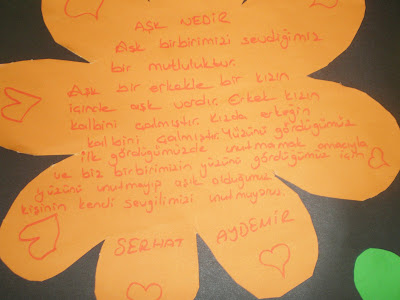 AŞK NEDİR
Aşk birbirimizi sevdiğimiz
bir mutluluktur.
Aşk bir erkekle bir kızın
içinde aşk vardır. Erkek kızın
kalbini çalmıştır. Kızda erkeğin
kalbini çalmıştır. Yüzünü gördüğümüz
ilk gördüğümüzde unutmamak amacıyla
ve biz birbirimizin yüzünü gördüğümüz için
yüzünü unutmayıp aşık olduğumuz
kişinin kendi sevgilimizi unutmuyoruz.
SERHAT AYDEMİR